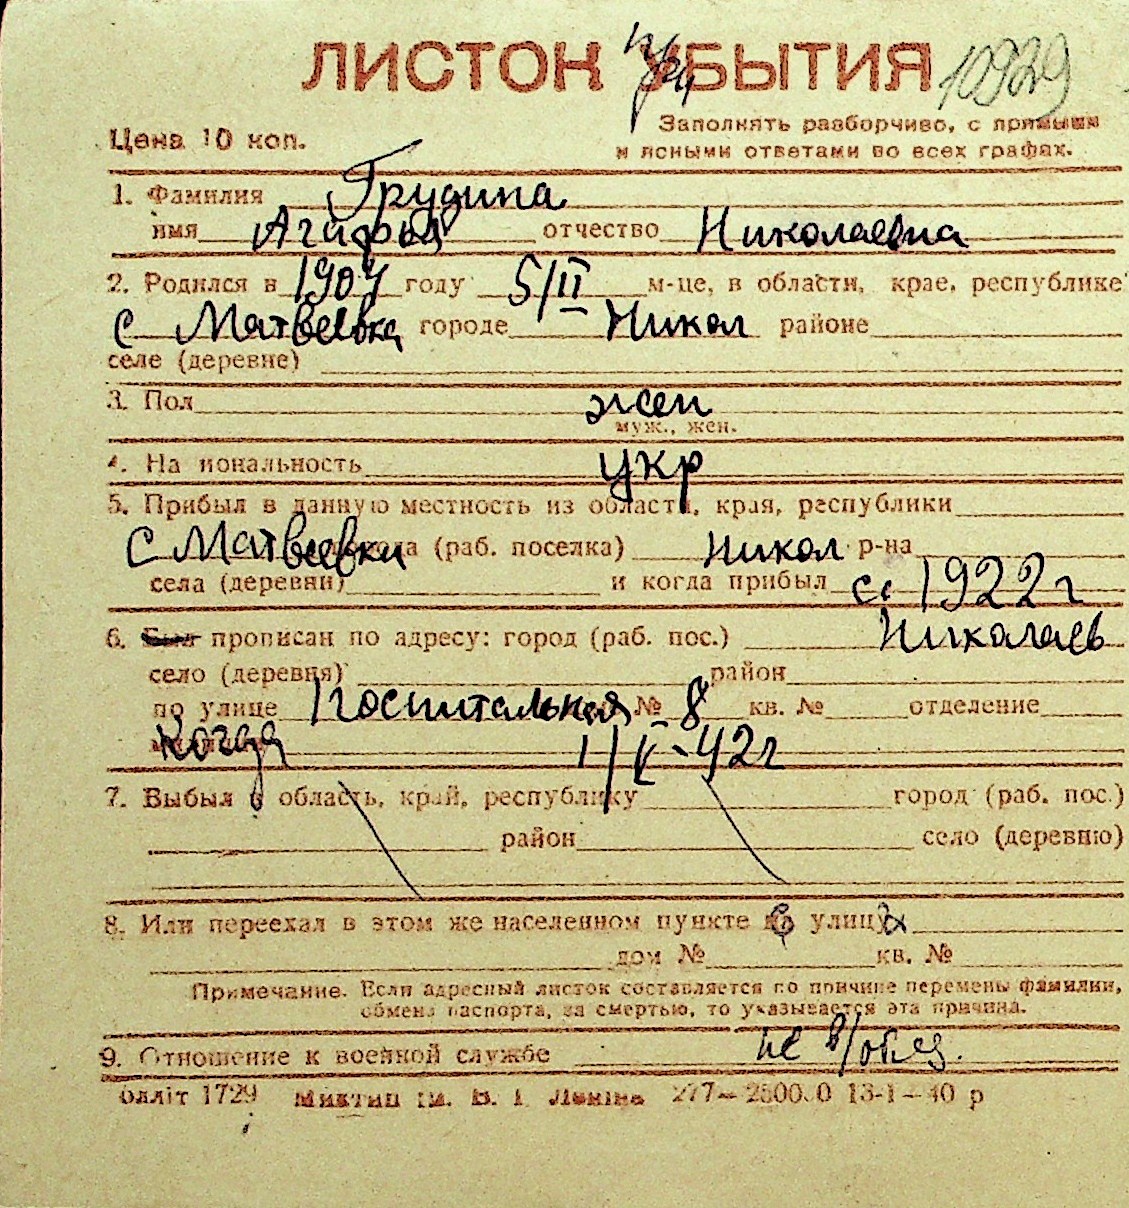 ЛИСТОК УБЫТИЯ 10929
Цена 10 коп.
Заполнять разборчиво, с прямыми
и ясными ответами во всех графах.
1. Фамилия Грудина
имя Агафья отчество Николаевна
2. Родился в 1904 году 5/II м-це, в области, крае, республике
с Матвеевка городе Никол районе
селе (деревне)
3. Пол жен
муж., жен.
4. На иональность укр
5. Прибыл в данную местность из области, края, республики
с Матвеевки города (раб. поселка) Никол р-на
села (деревни) и когда прибыл с 1922 г
6. Был прописан по адресу: город (раб. пос.) Николаев
село (деревня) район
по улице Госпитальная № 8 кв. № отделение
Когда 1/V-42 г
7. Выбыл в область, край, республику город (раб. пос.)
район село (деревню)
8. Или переехал в этом же населенном пункте улицу
дом № кв. №
Примечание. Если адресный листок составляется по причине перемены фамилии,
обмена паспорта, за смертью, то указывается эта причина.
9. Отношение к военной службе не в/обяз.
олліт 1729 Миктип ім. В. І. Леніна 277—2500.0 13-1—40 р